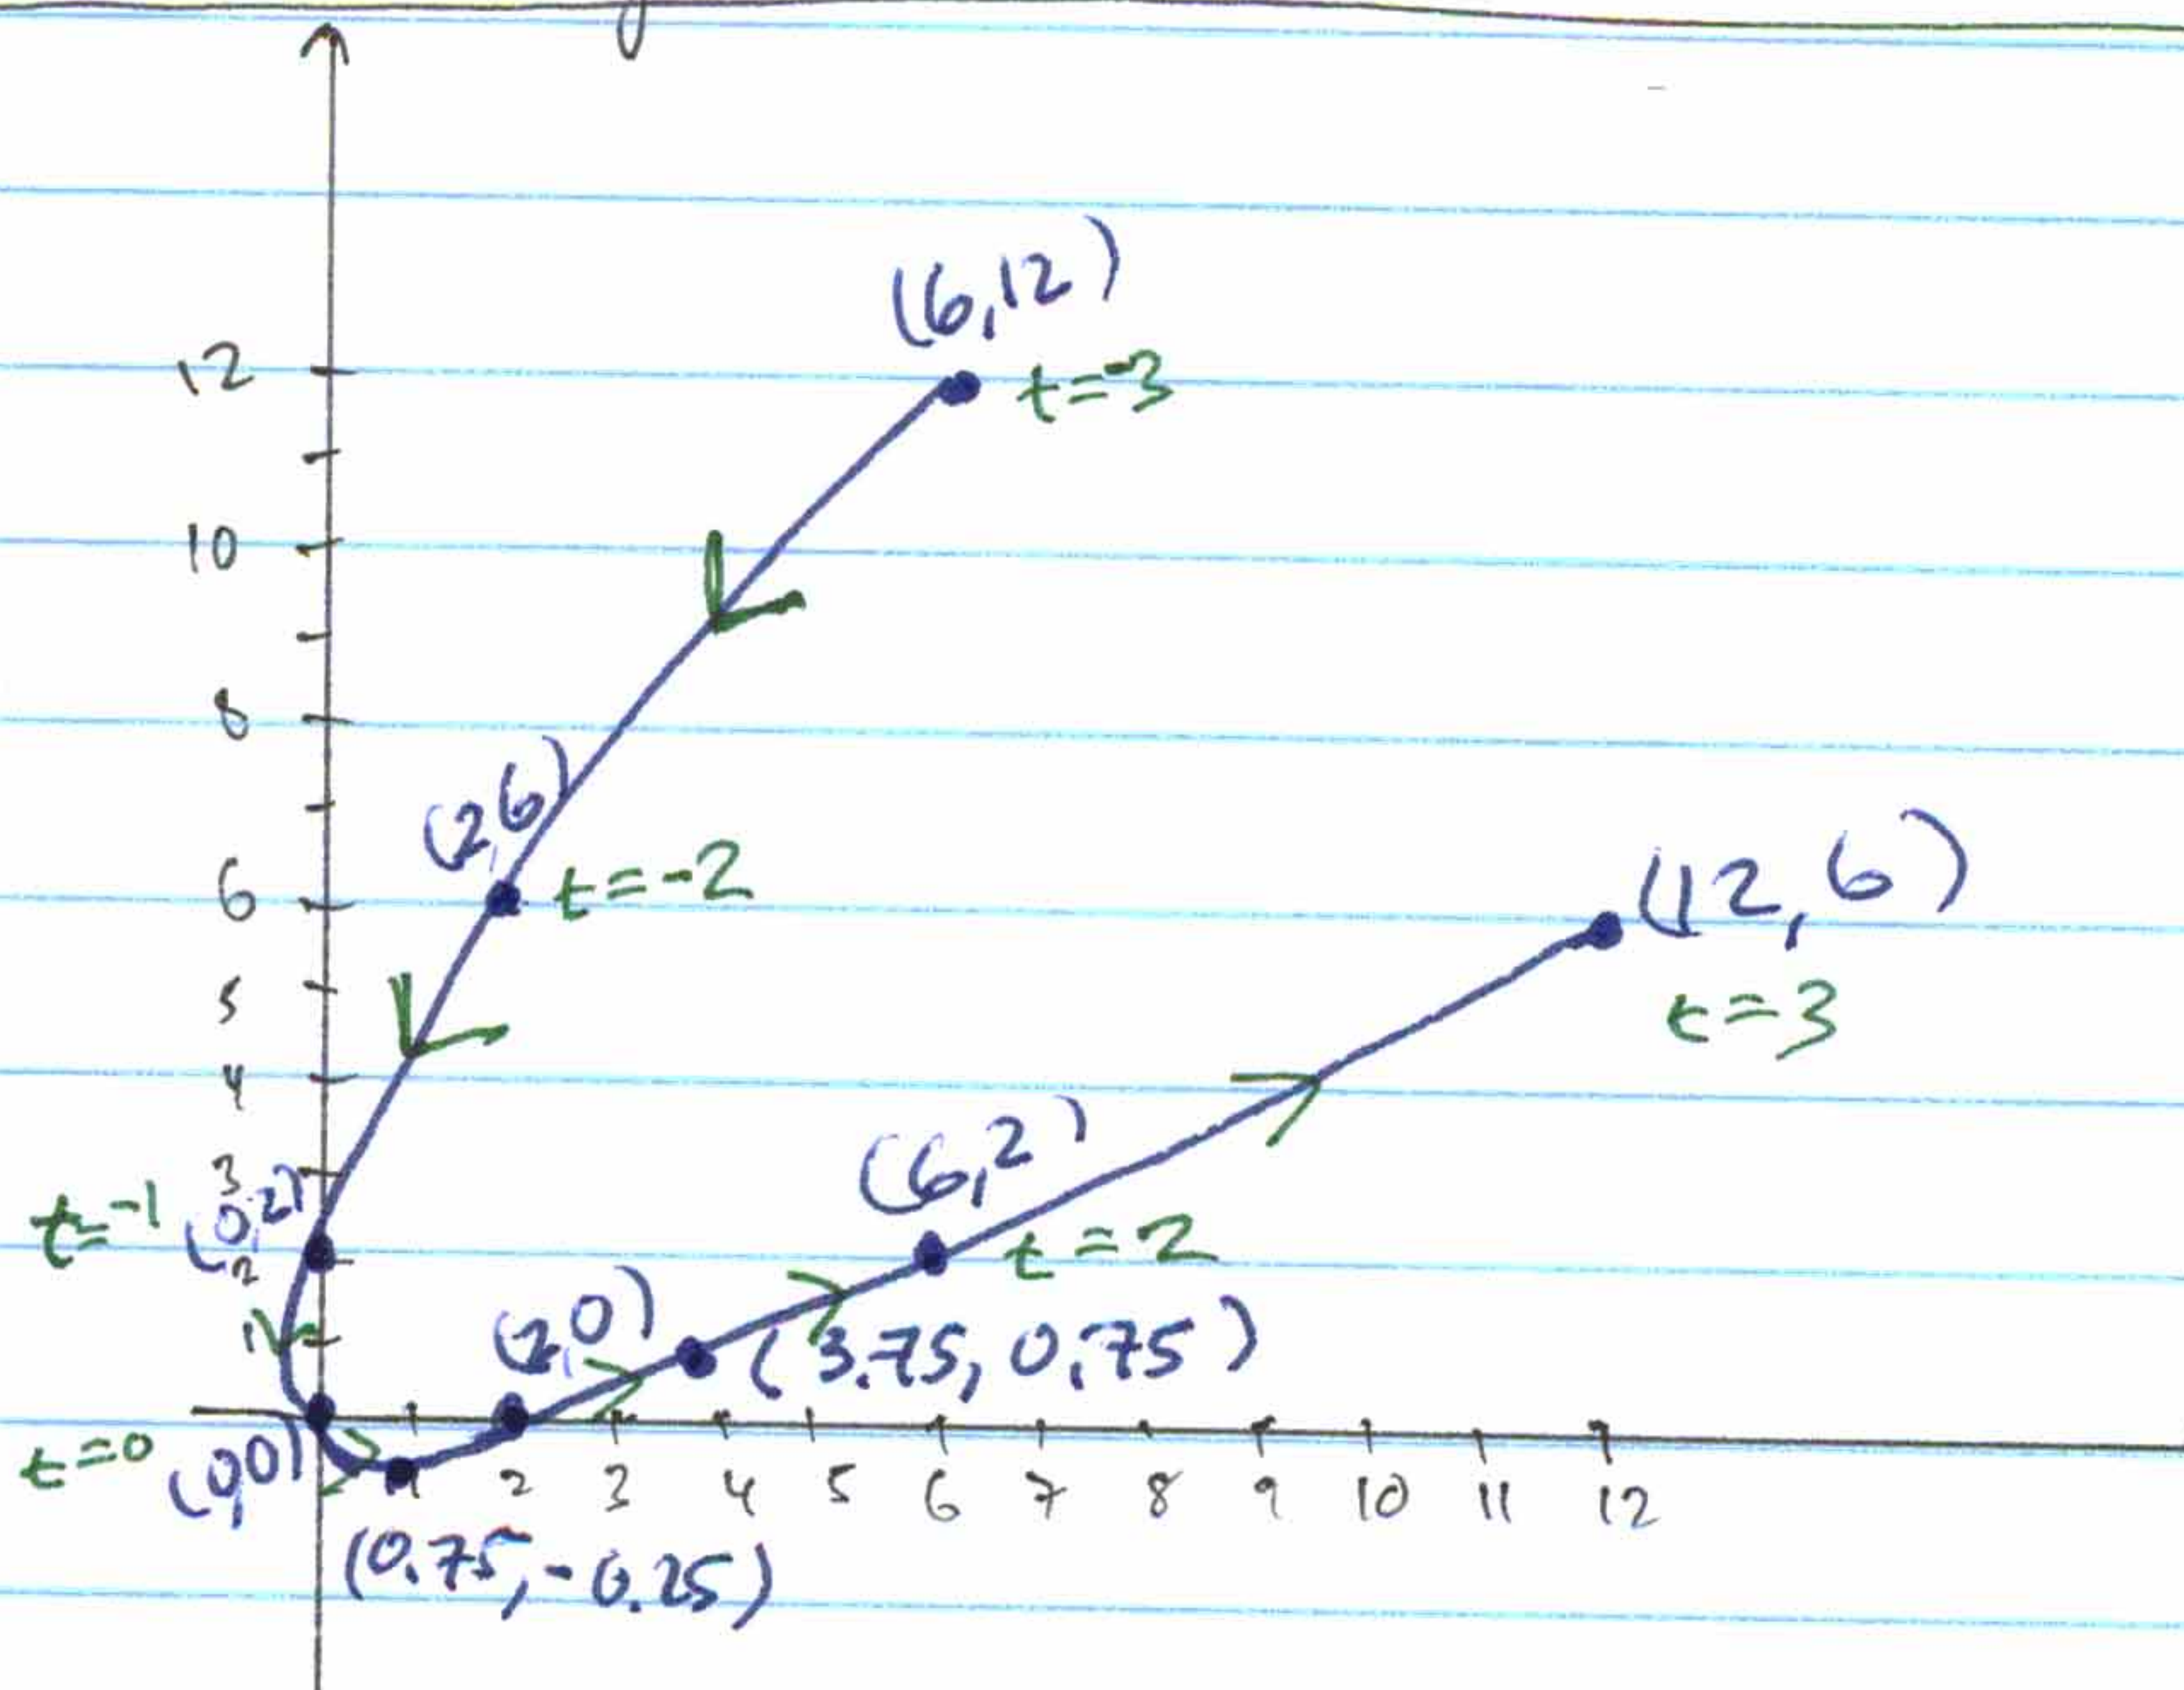 (6,12)
12
t=-3
10
8
(2,6)
6
t=-2
(12,6)
5
t=3
4
(6,2)
3
t=-1
(0,2)
2
t=2
(2,0)
1
(3.75, 0.75)
t=0
(0,0)
1 2 3 4 5 6 7 8 9 10 11 12
(0.75,-0.25)